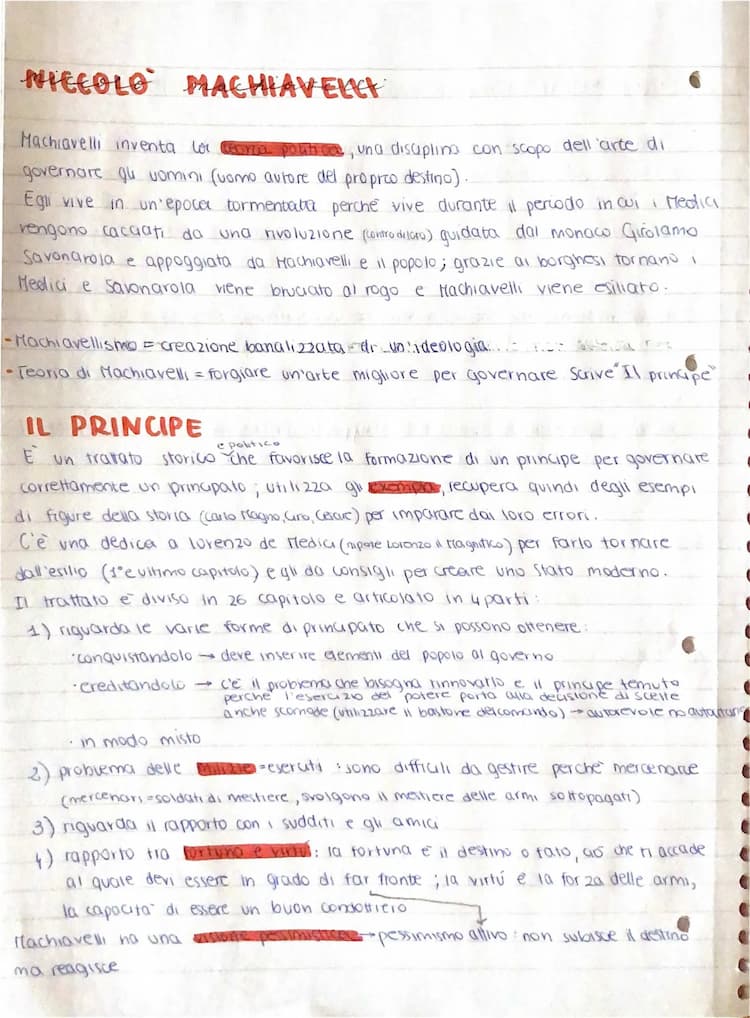 NICCOLÒ MACHIAVELLI
Machiavelli inventa la teoria politica, una disciplina con scopo dell'arte di
governare gli uomini (uomo autore del proprio destino).
Egli vive in un'epoca tormentata perché vive durante il periodo in cui i Medici
vengono cacciati da una rivoluzione (contro di loro) guidata dal monaco Girolamo
Savonarola e appoggiata da Machiavelli e il popolo; grazie ai borghesi tornano i
Medici e Savonarola viene bruciato al rogo e Machiavelli viene esiliato.
-Machiavellismo = creazione banalizzata di un'ideologia
-Teoria di Machiavelli = forgiare un'arte migliore per governare scrive "Il principe"
IL PRINCIPE
e politico
È un trattato storico che favorisce la formazione di un principe per governare
correttamente un principato; utilizza gli exempla, recupera quindi degli esempi
di figure della storia (Carlo Magno, Ciro, Cesare) per imparare dai loro errori.
C'è una dedica a Lorenzo de Medici (nipote Lorenzo il Magnifico) per farlo tornare
dall'esilio (1° e ultimo capitolo) e gli da consigli per creare uno Stato moderno.
Il trattato è diviso in 26 capitolo e articolato in 4 parti:
1) riguarda le varie forme di principato che si possono ottenere:
·conquistandolo → deve inserire elementi del popolo al governo
·creditandolo → c'è il problema che bisogna rinnovarlo e il principe temuto
perché l'esercizio del potere porta alla decisione di scelte
anche scomode (utilizzare il bastone del comando) → autorevole no autoritario
· in modo misto
2) problema delle milizie = eserciti : sono difficili da gestire perché mercenarie
(mercenari = soldati di mestiere, svolgono il mestiere delle armi sottopagati)
3) riguarda il rapporto con i sudditi e gli amici
4) rapporto tra fortuna e virtù: la fortuna è il destino o fato, ciò che ti accade
al quale devi essere in grado di far fronte ; la virtù è la forza delle armi,
la capacità di essere un buon condottiero
Machiavelli ha una visione pessimistica → pessimismo attivo : non subisce il destino
ma reagisce